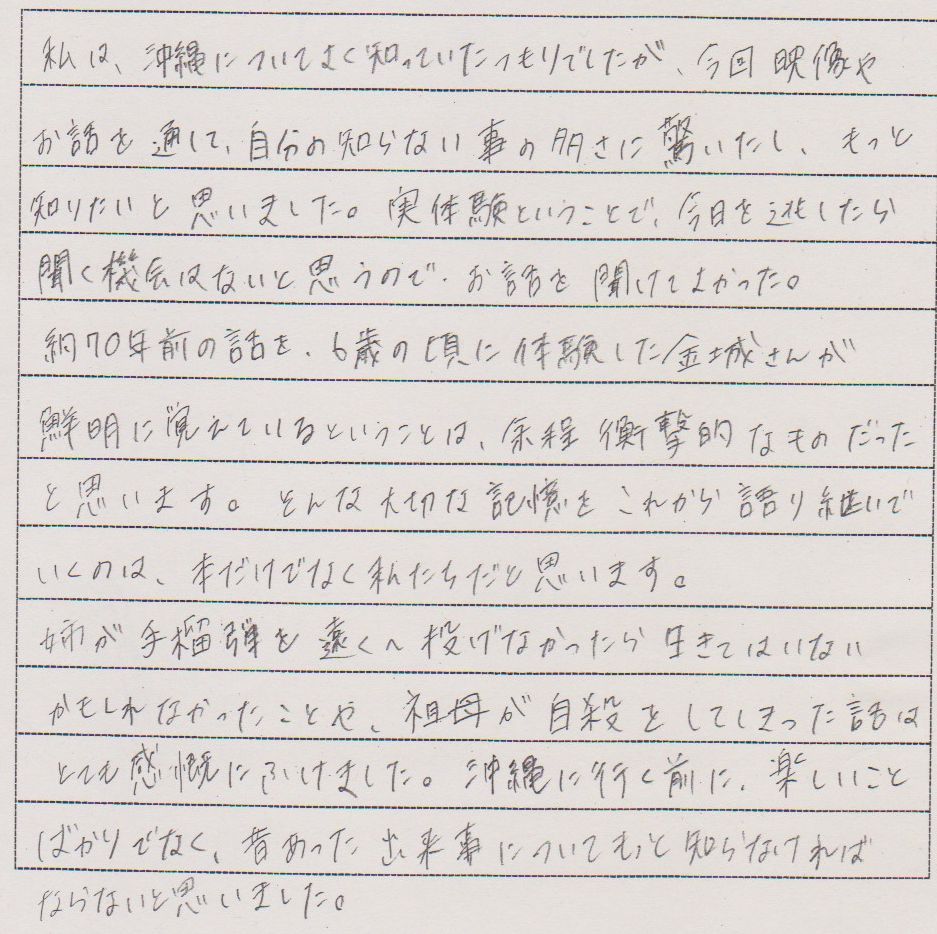 私は、沖縄についてよく知っていたつもりでしたが、今回映像や
お話を通して、自分の知らない事の多さに驚いたし、もっと
知りたいと思いました。実体験ということで、今日を逃したら
聞く機会はないと思うので、お話を聞けてよかった。
約70年前の話を、6歳の頃に体験した金城さんが
鮮明に覚えているということは、余程衝撃的なものだった
と思います。そんな大切な記憶をこれから語り継いで
いくのは、本だけでなく私たちだと思います。
姉が手榴弾を遠くへ投げなかったら生きてはいない
かもしれなかったことや、祖母が自殺をしてしまった話は
とても感慨にふけました。沖縄に行く前に、楽しいこと
ばかりでなく、昔あった出来事についてもっと知らなければ
ならないと思いました。